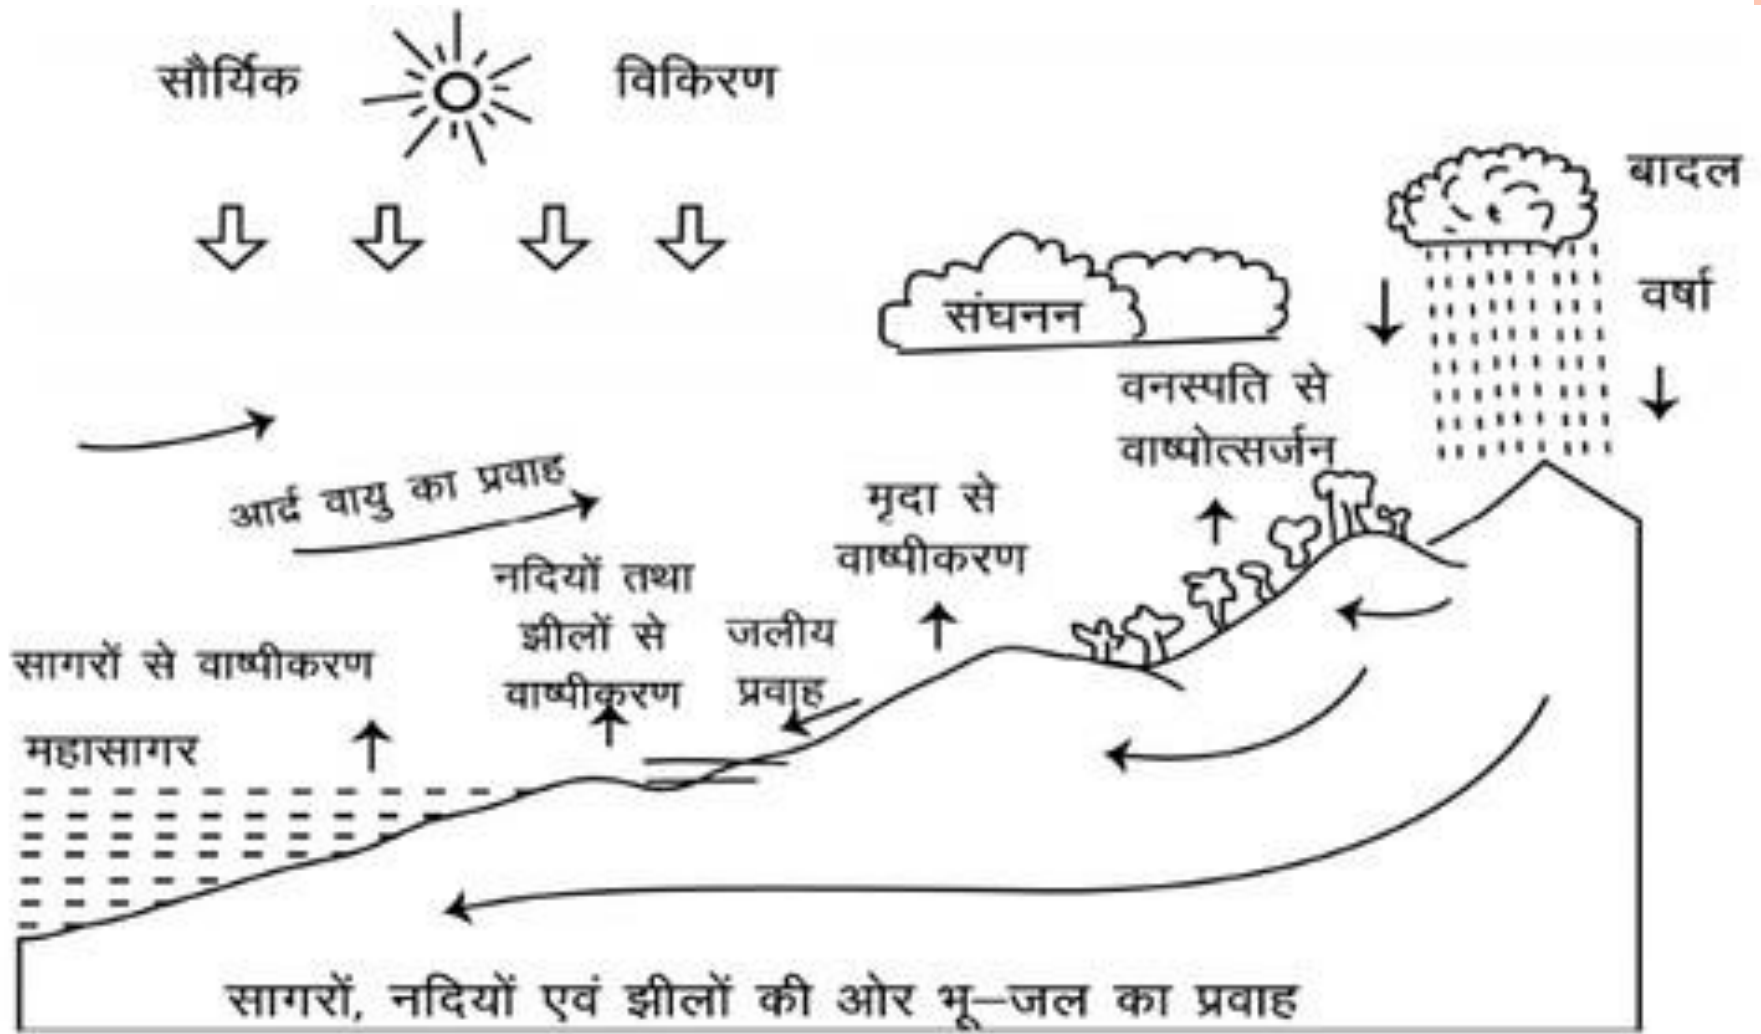 सौर्यिक विकिरण
बादल
वर्षा
संघनन
वनस्पति से
वाष्पोत्सर्जन
आर्द्र वायु का प्रवाह
मृदा से
वाष्पीकरण
नदियों तथा
झीलों से
वाष्पीकरण
जलीय
प्रवाह
सागरों से वाष्पीकरण
महासागर
सागरों, नदियों एवं झीलों की ओर भू–जल का प्रवाह